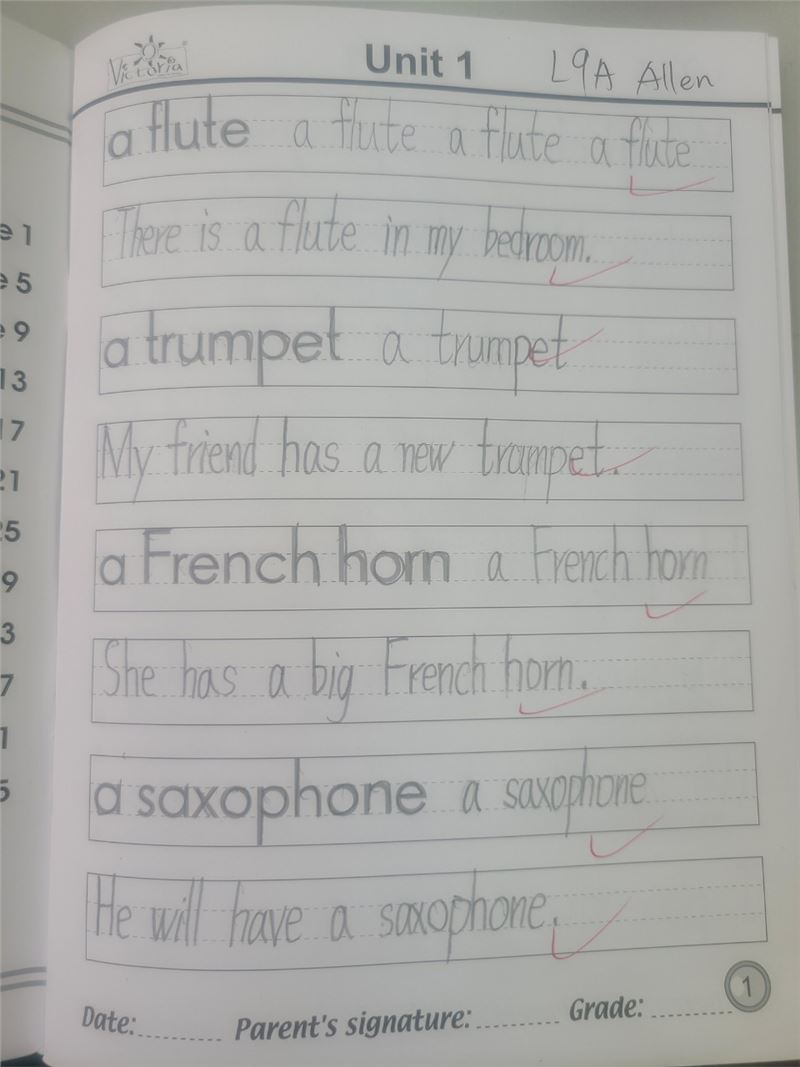 Victoria
Unit 1
L9A Allen
a flute a flute a flute a flute
There is a flute in my bedroom.
a trumpet a trumpet
My friend has a new trampet.
a French horn a French horn
She has a big French horn.
a saxophone a saxophone
He will have a saxophone.
Date: Parent's signature: Grade:
1
e 1
e 5
e 9
13
17
21
25
9
3
7
1
5